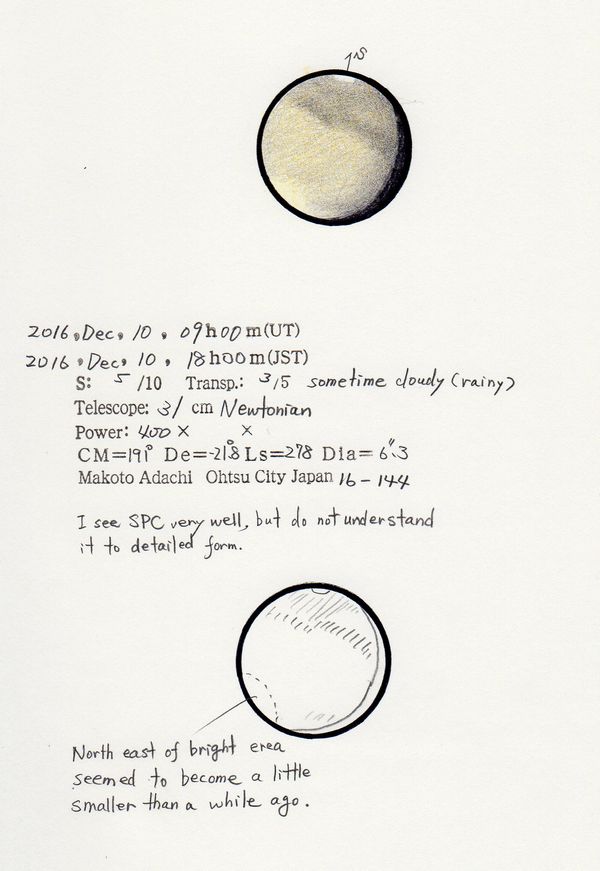 ↑S
2016, Dec, 10, 09h00m(UT)
2016, Dec, 10, 18h00m(JST)
S: 5/10 Transp.: 3/5 sometime cloudy (rainy)
Telescope: 31 cm Newtonian
Power: 400× ×
CM=191° De=-21°.8 Ls=278 Dia= 6".3
Makoto Adachi Ohtsu City Japan 16-144
I see SPC very well, but do not understand
it to detailed form.
North east of bright erea
seemed to become a little
smaller than a while ago.